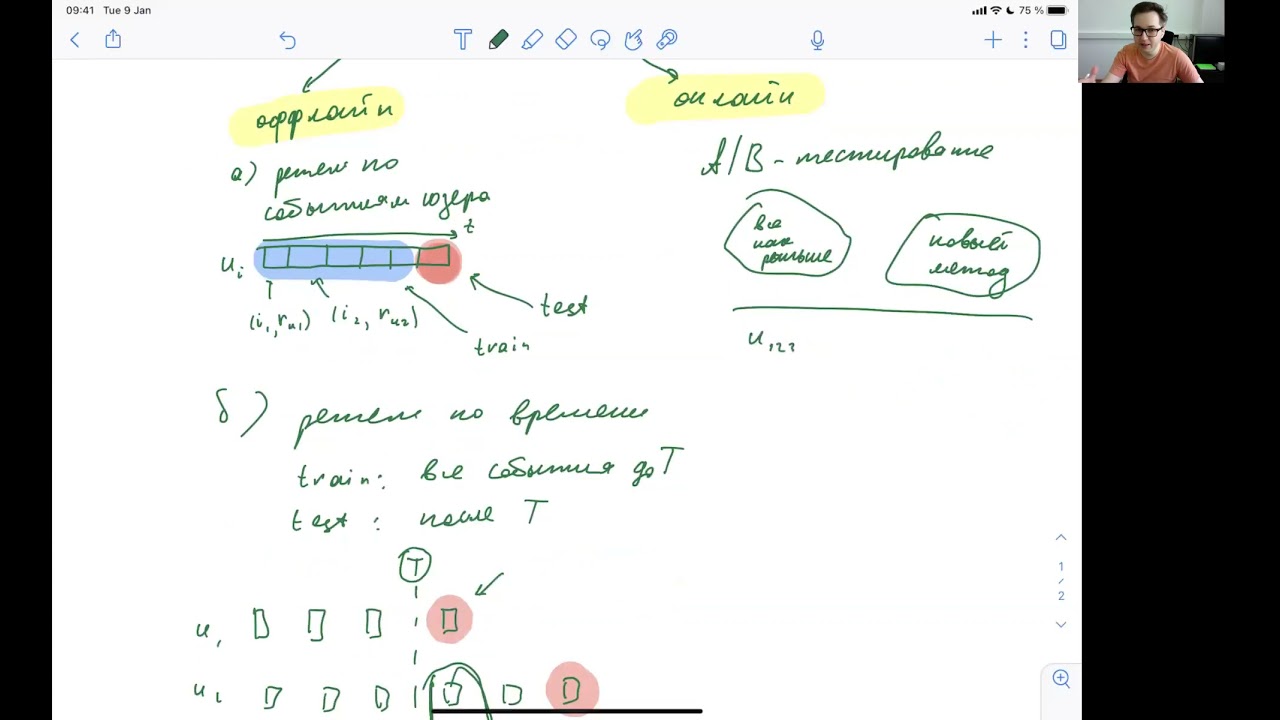 09:41 Tue 9 Jan
75 %
оффлайн
онлайн
а) режем по
событиям юзера
t
u i
(i1, ru1) (i2, ru2)
test
train
A/B-тестирование
все
как
раньше
новый
метод
u123
б) режем по времени
train: все события до T
test: после T
T
u1
u2
1
/
2